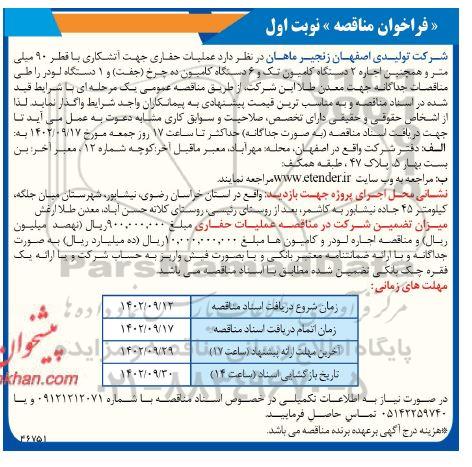 « فراخوان مناقصه » نوبت اول
شرکت تولیدی اصفهان زنجیر ماهان در نظر دارد عملیات حفاری جهت آتشکاری با قطر ۹۰ میلی
متر و همچنین اجاره ۲ دستگاه کامیون تک و ۶ دستگاه کامیون ده چرخ (جفت) و ۱ دستگاه لودر را طی
مناقصات جداگانه جهت معدن طلا این شرکت از طریق مناقصه عمومی یک مرحله ای با شرایط قید
شده در اسناد مناقصه و به مناسب ترین قیمت پیشنهادی به پیمانکاران واجد شرایط واگذار نماید. لذا
از اشخاص حقوقی و حقیقی دارای تخصص، صلاحیت و سوابق کاری مشابه دعوت به عمل می آید تا
جهت دریافت اسناد مناقصه (به صورت جداگانه) حداکثر تا ساعت ۱۷ روز جمعه مورخ ۱۴۰۲/۰۹/۱۷ به:
الف: دفتر شرکت واقع در اصفهان، محله: مهرآباد، معبر ماقبل آخر: کوچه شماره ۱۲ ، معبر آخر: بن
بست بهار ۵، پلاک ۴۷ ، طبقه همکف:
ب: مراجعه به وب سایت www.etender.ir مراجعه نمایند.
نشانی محل اجرای پروژه جهت بازدید: واقع در استان خراسان رضوی، نیشابور، شهرستان میان جلگه،
کیلومتر ۴۵ جاده نیشابور به کاشمر، بعد از روستای رئیسی، روستای کلاته حسن آباد، معدن طلا ارغش
میزان تضمین شرکت در مناقصه عملیات حفاری مبلغ ۹۰۰،۰۰۰،۰۰۰ ریال (نهصد میلیون
ریال) و مناقصه اجاره لودر و کامیون ها مبلغ ۱۰،۰۰۰،۰۰۰،۰۰۰ ریال (ده میلیارد ریال) به صورت
جداگانه و با ارائه ضمانتنامه معتبر بانکی و یا بصورت فیش واریز به حساب شرکت و یا ارائه یک
فقره چک بانکی تضمین شده مطابق با اسناد مناقصه می باشد.
مهلت های زمانی:
زمان شروع دریافت اسناد مناقصه ۱۴۰۲/۰۹/۱۲
زمان اتمام دریافت اسناد مناقصه ۱۴۰۲/۰۹/۱۷
آخرین مهلت ارائه پیشنهاد (ساعت ۱۷) ۱۴۰۲/۰۹/۲۹
تاریخ بازگشایی اسناد (ساعت ۱۴) ۱۴۰۲/۰۹/۳۰
در صورت نیاز به اطلاعات تکمیلی در خصوص اسناد مناقصه با شماره ۰۹۱۲۱۲۱۲۰۷۱ و یا
۰۵۱۴۲۲۵۹۷۴۰ تماس حاصل فرمایید.
*هزینه درج آگهی برعهده برنده مناقصه می باشد.
۴۶۷۵۱
پیشخوان